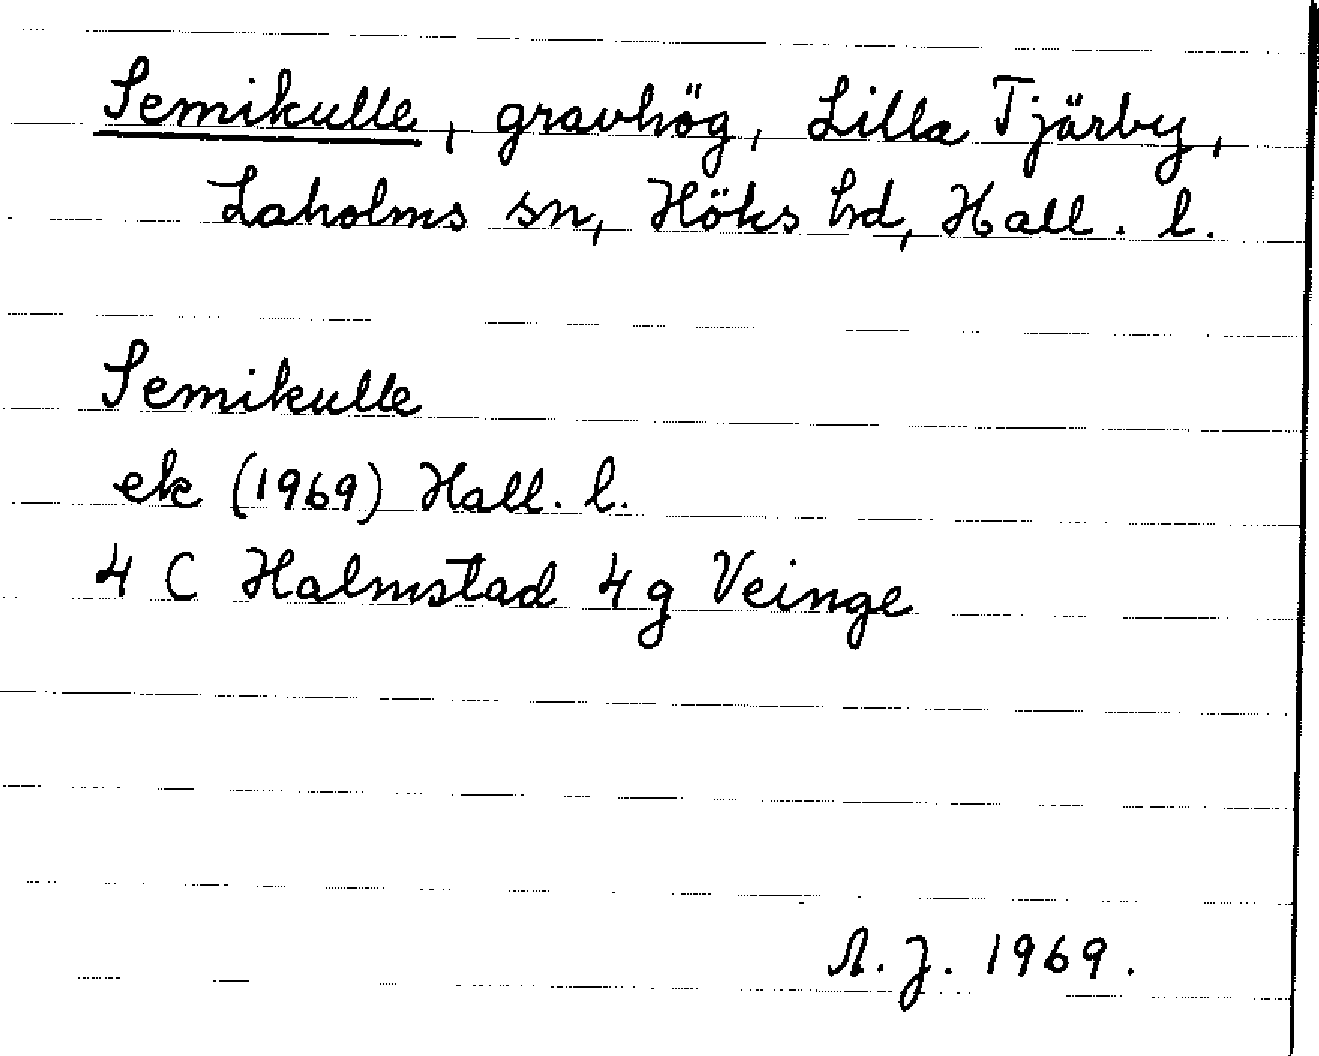 Semikulle, gravhög, Lilla Tjärby,
Laholms sn, Höks hd, Hall. l.
Semikulle
ek (1969) Hall. l.
4 C Halmstad 4 g Veinge
A. J. 1969.